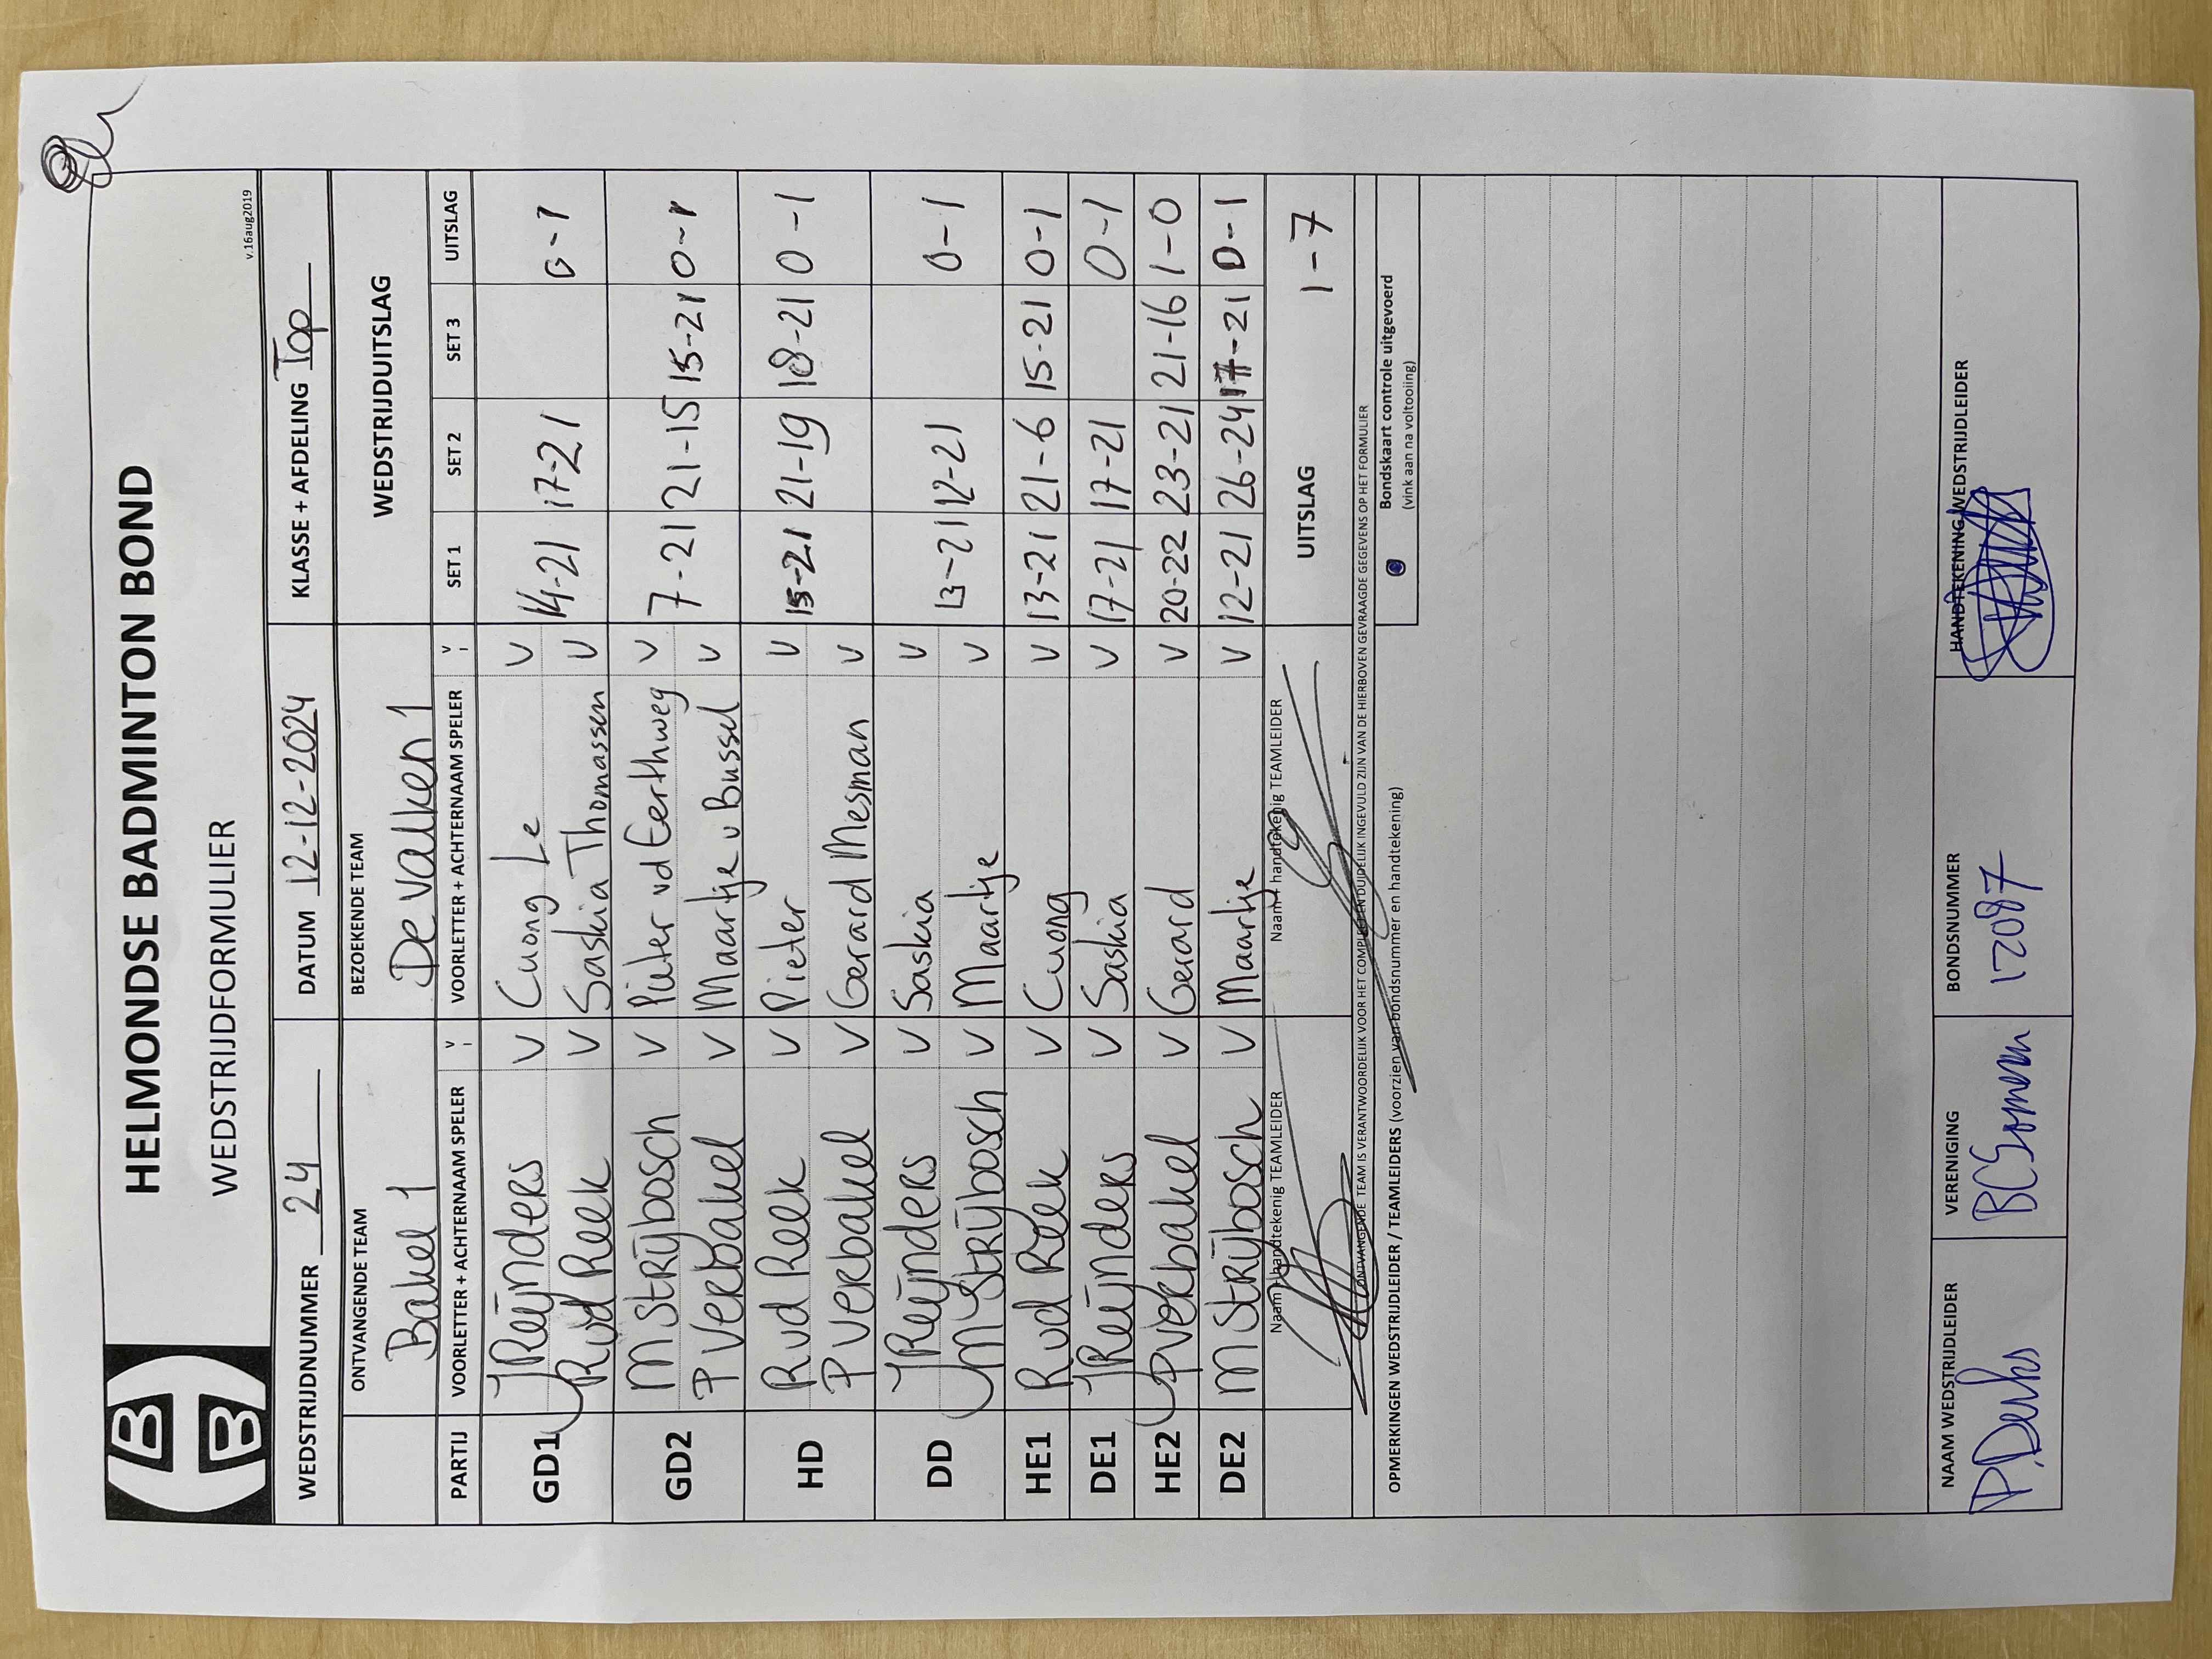 HELMONDSE BADMINTON BOND
WEDSTRIJDFORMULIER
v.16aug2019
WEDSTRIJDNUMMER 24 DATUM 12-12-2024 KLASSE + AFDELING Top
ONTVANGENDE TEAM BEZOEKENDE TEAM WEDSTRIJDUITSLAG
Bakel 1 De Valken 1
PARTIJ VOORLETTER + ACHTERNAAM SPELER V VOORLETTER + ACHTERNAAM SPELER V SET 1 SET 2 SET 3 UITSLAG
GD1 J Reijnders V Cuong Le V 14-21 17-21 0-1
Rud Reek V Saskia Thomassen V
GD2 M Strijbosch V Pieter vd Eerthweg V 7-21 21-15 15-21 0-1
P Verbakel V Maartje v Bussel V
HD Rud Reek V Pieter V 15-21 21-19 18-21 0-1
P Verbakel V Gerard Mesman V
DD J Reijnders V Saskia V 13-21 12-21 0-1
M Strijbosch V Maartje V
HE1 Rud Reek V Cuong V 13-21 21-6 15-21 0-1
DE1 J Reijnders V Saskia V 17-21 17-21 0-1
HE2 P Verbakel V Gerard V 20-22 23-21 21-16 1-0
DE2 M Strijbosch V Maartje V 12-21 26-24 17-21 0-1
Naam + handtekenig TEAMLEIDER Naam + handtekenig TEAMLEIDER UITSLAG 1-7
ONTVANGENDE TEAM IS VERANTWOORDELIJK VOOR HET COMPLEET EN DUIDELIJK INGEVULD ZIJN VAN DE HIERBOVEN GEVRAAGDE GEGEVENS OP HET FORMULIER
OPMERKINGEN WEDSTRIJDLEIDER / TEAMLEIDERS (voorzien van bondsnummer en handtekening)
Bondskaart controle uitgevoerd
(vink aan na voltooiing)
NAAM WEDSTRIJDLEIDER VERENIGING BONDSNUMMER HANDTEKENING WEDSTRIJDLEIDER
P. Derks BC Someren 12087
BB